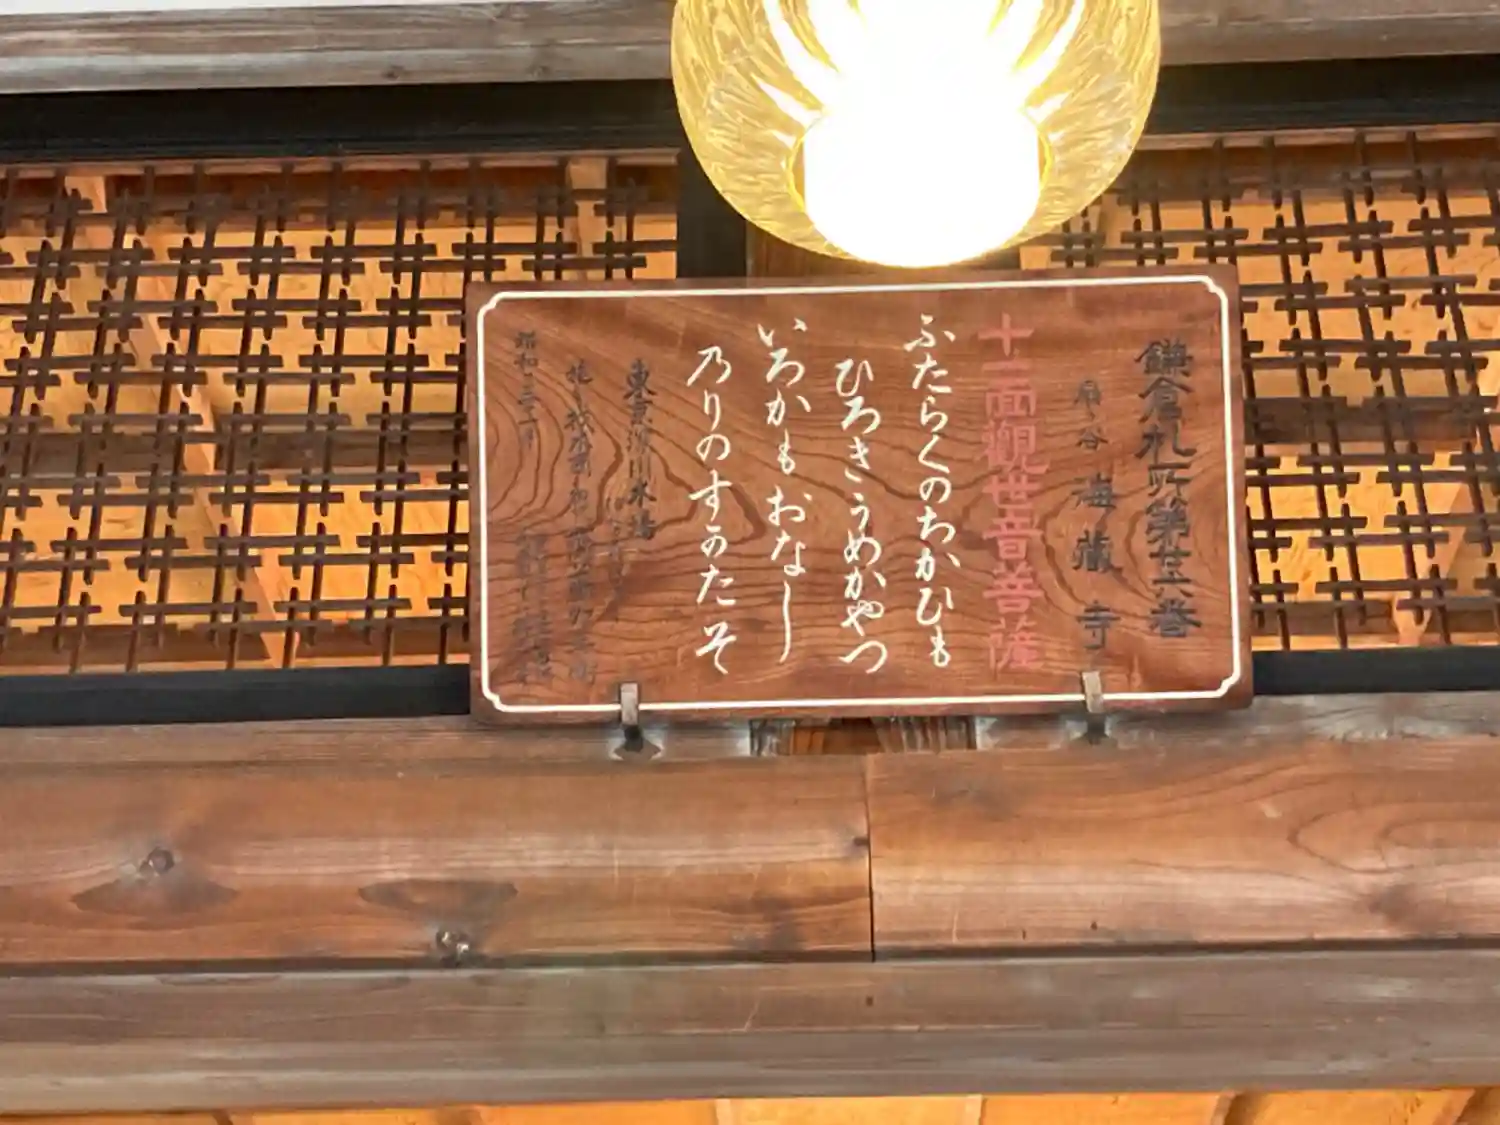 鎌倉札所第廿六番
扇ヶ谷 海藏寺
十一面觀世音菩薩
ふたらくのちかひも
ひろきうめかやつ
いろかもおなし
乃りのすかたそ
東京深川木場
昭和三十一年